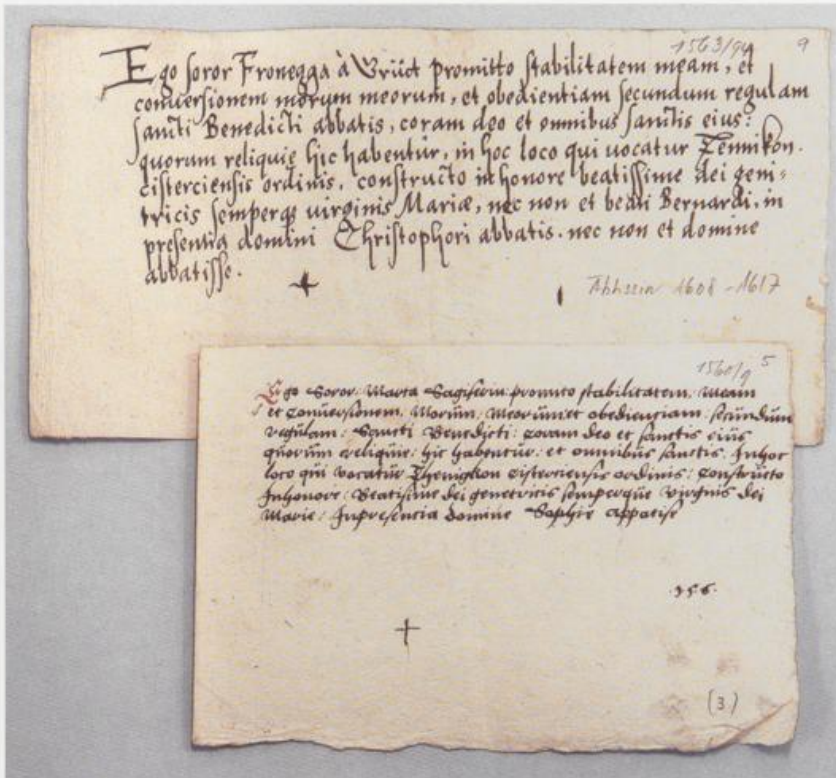 1563/94 9
Ego soror Fronegga à Grüdt promitto stabilitatem meam, et
conuersionem morum meorum, et obedientiam secundum regulam
sancti Benedicti abbatis, coram deo et omnibus sanctis eius:
quorum reliquie hic habentur, in hoc loco qui uocatur Tennikon.
cisterciensis ordinis. constructo in honore beatissime dei geni-
tricis semperque uirginis Mariæ, nec non et beati Bernardi, in
presentia domini Christophori abbatis. nec non et domine
abbatisse.
Abbssin 1608 - 1617
1560/9 5
Ego Soror: Marta Sagiserin: promito stabilitatem, Meam
et Conuersionem, Morum, Meorum: et obedienciam: secundum
regulam: Sancti Benedicti: coram deo et sanctis eius
quorum reliquie: hic habentur: et omnibus sanctis. Inhoc
loco qui vocatur Thenigkon Cisterciensis ordinis: Constructo
Inhonore: Beatisime dei genetricis semperque virginis dei
Marie: Inpresencia domine Sophie appatise
.356.
(3)